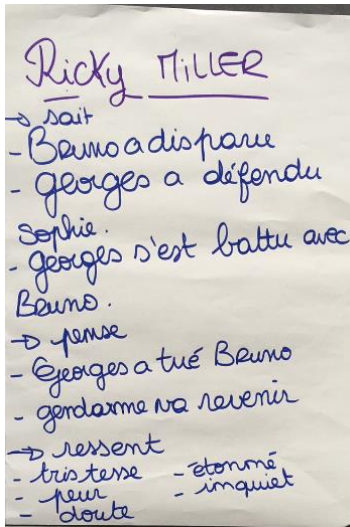 Ricky MILLER
→ sait
- Bruno a disparu
- georges a défendu
Sophie.
- georges s'est battu avec
Bruno.
→ pense
- Georges a tué Bruno
- gendarme va revenir
→ ressent
- tristesse - étonné
- peur - inquiet
- doute